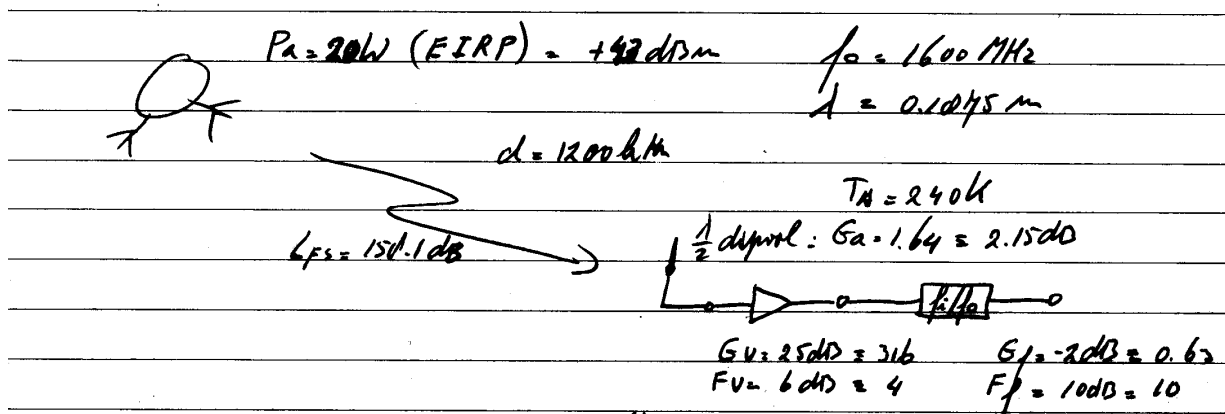 Pa = 20W (EIRP) = +43 dBm
fo = 1600 MHz
λ = 0.1875 m
d = 1200 km
TA = 240K
LFS = 158.1 dB
λ/2 dipool : Ga = 1.64 = 2.15dB
fi/fo
Gv = 25dB = 316
Gf = -2dB = 0.63
Fv = 6dB = 4
Ff = 10dB = 10